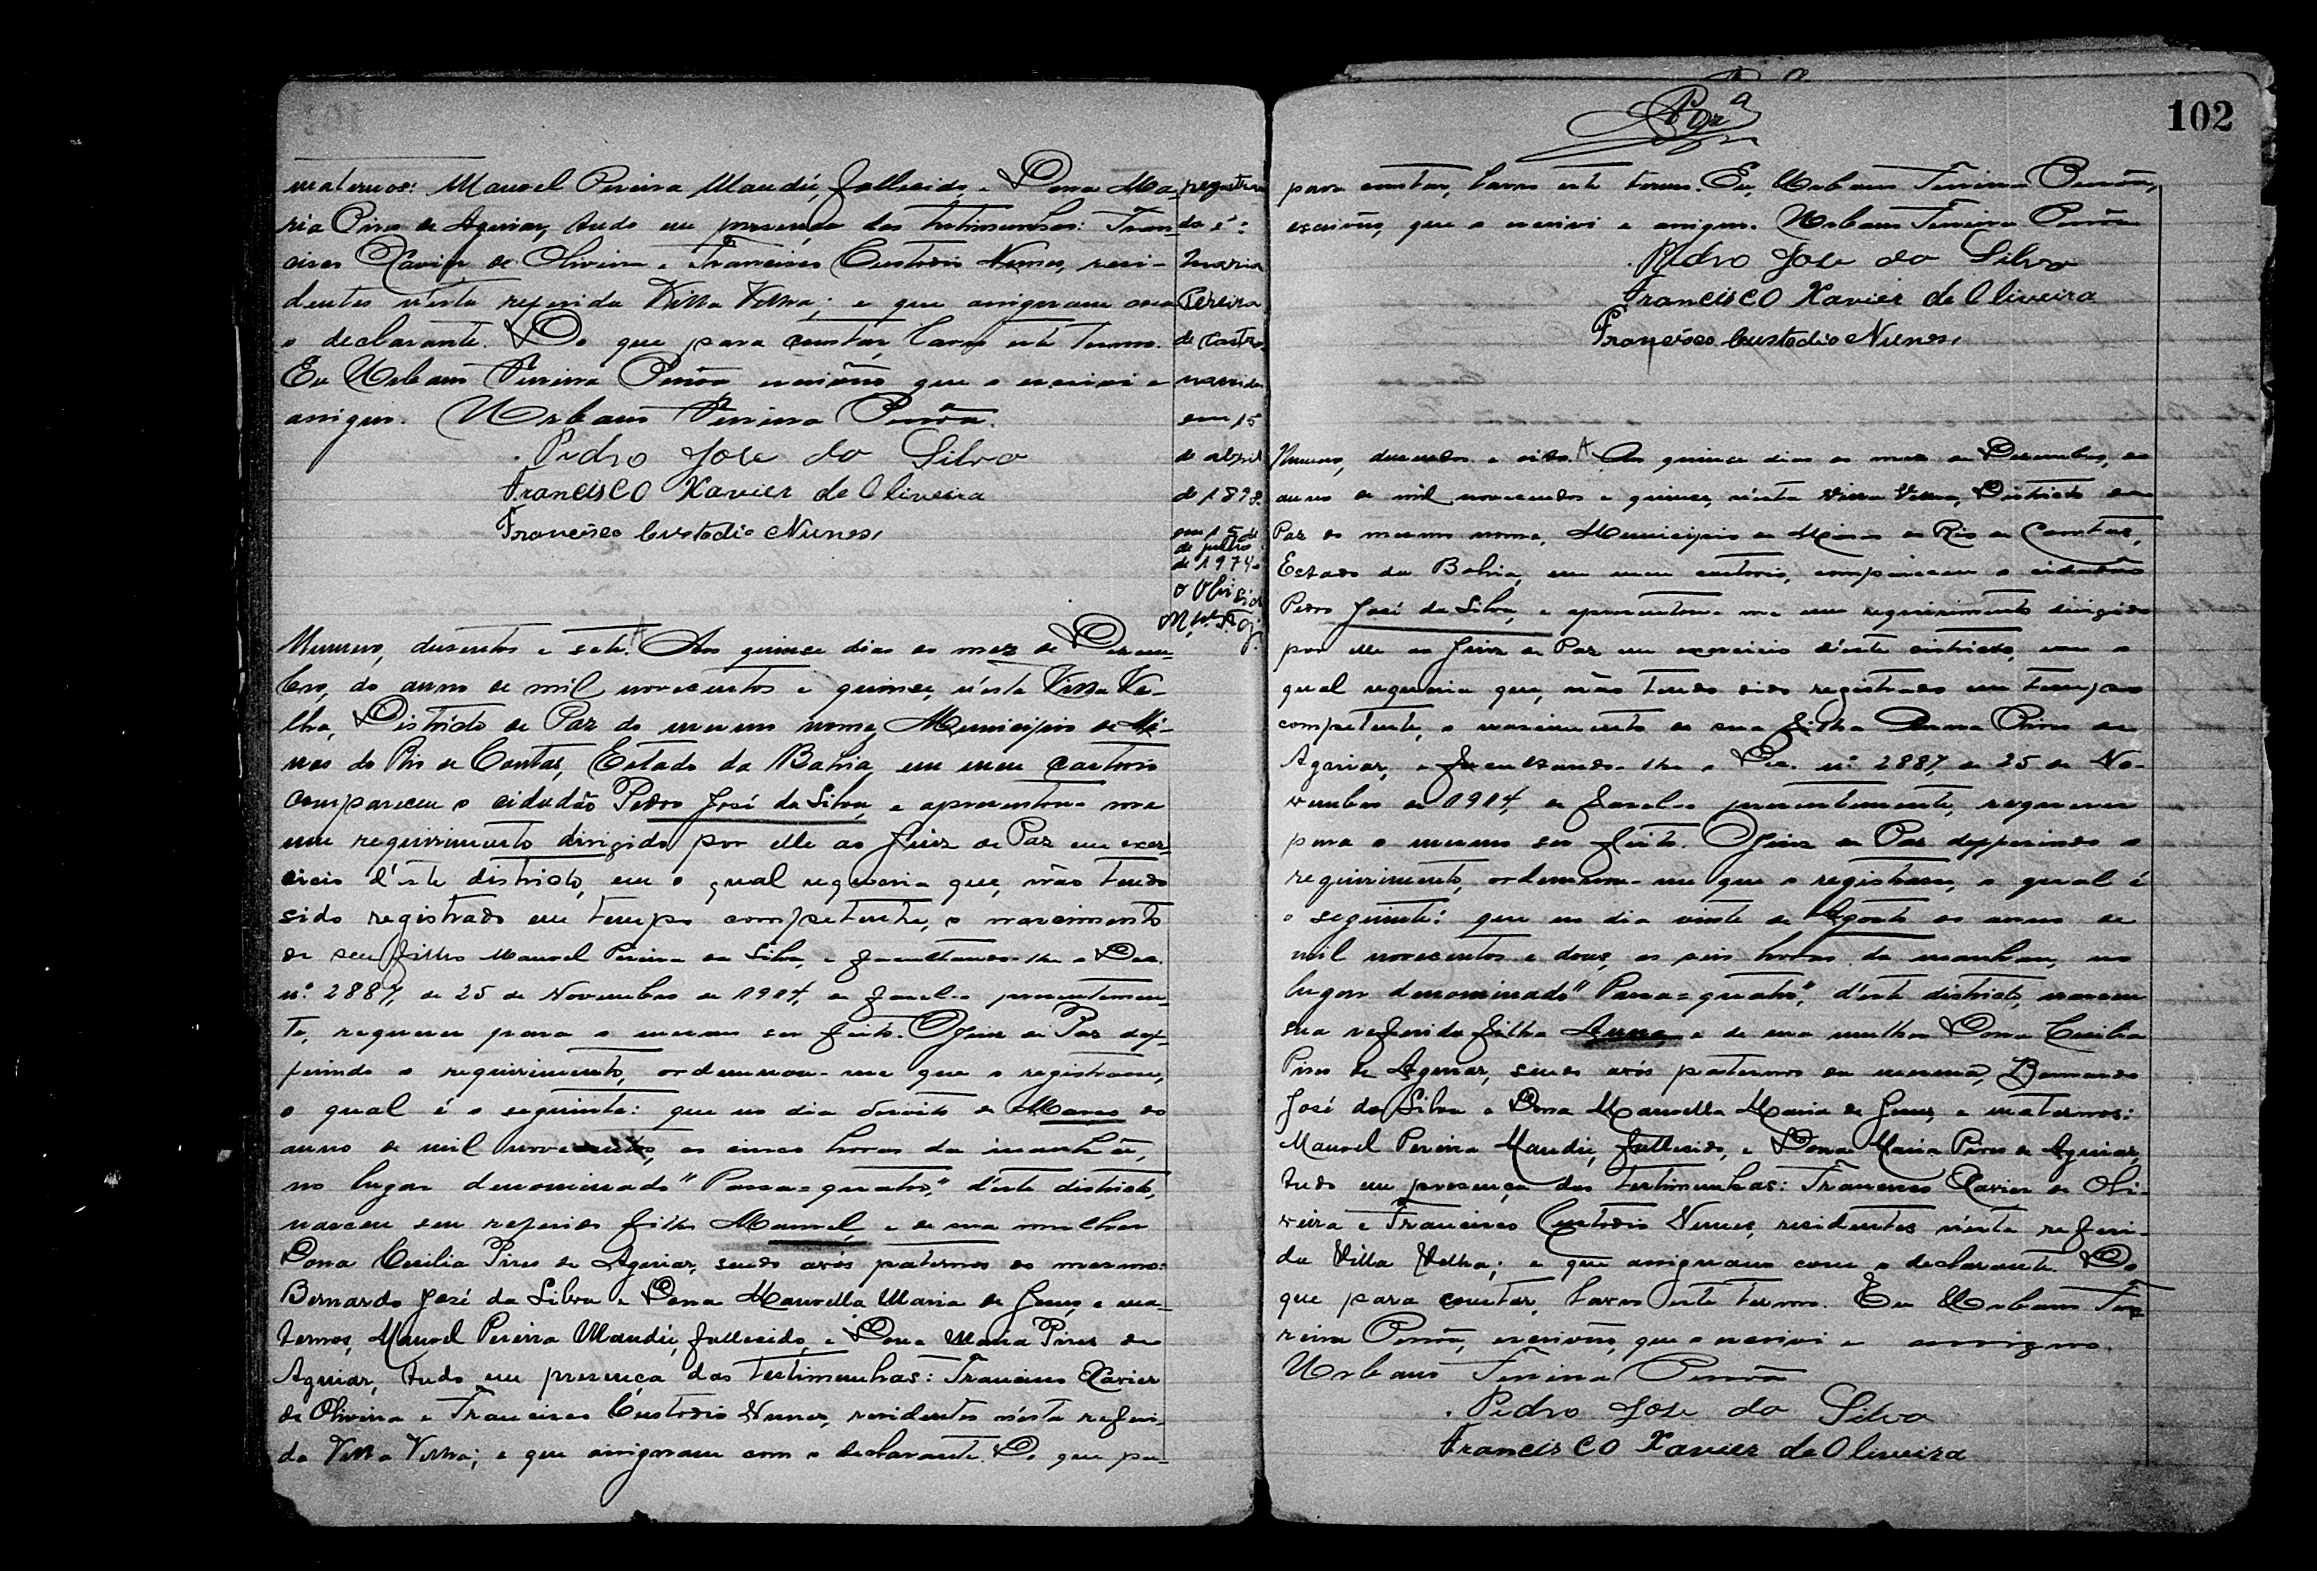 maternos: Manoel Pereira Mandú, fallecido e Dona Ma-
ria Pires de Aguiar, tudo em presença das testimunhas: Fran-
cisco Xavier de Oliveira e Francisco Custodio Nunes, resi-
dentes n'esta referida Villa Velha; e que assignaram com
o declarante. Do que para constar, lavro este termo.
Eu Urbano Ferreira escrivão que o escrivi e
assigno. Urbano Ferreira
Pedro Jose da Silva
Francisco Xavier de Oliveira
Francisco Custodio Nunes,
registra
da é:
Maria
Pereira
de Castro,
nascida
em 15
de abril
de 1898
em 15 de
de julho
de 1974
o Oficial
Numero, dusentos e sete. Aos quinze dias do mez de Dezem-
bro, do anno de mil novecentos e quinze, n'esta Villa Ve-
lha, Districto de Paz do mesmo nome, Municipio de Mi-
nas do Rio de Contas, Estado da Bahia, em meu cartorio
compareceu o cidadão Pedro José da Silva, e apresentou-me
um requirimento dirigido por elle ao Juiz de Paz em exer-
cicio d'este districto, em o qual requeria que, não tendo
sido registrado em tempo competente, o nascimento
de seu filho Manoel Pereira da Silva, e facultando-lhe o Dec.
nº 2887, de 25 de Novembro de 1914, de fazel-o presentemen-
te, requerer para o mesmo ser feito. O Juiz de Paz def-
ferindo o requirimento, ordennou-me que o registrasse,
o qual é o seguinte: que no dia desoito de Março do
anno de mil novecentos, as cinco horas da manhã,
no lugar denominado "Passa=quatro", d'este districto,
nasceu seu referido filho Manoel, e de sua mulher
Dona Cecilia Pires de Aguiar, sendo avós paternos do mesmo:
Bernardo José da Silva e Dona Manoella Maria de Jesus, e ma-
ternos, Manoel Pereira Mandú, fallecido, e Dona Maria Pires de
Aguiar, tudo em presença das testimunhas: Francisco Xavier
de Oliveira e Francisco Custodio Nunes, residentes n'esta referi-
da Villa Velha; e que assignaram com o declarante. Do que pa-
102
para constar, lavro este termo. Eu, Urbano Ferreira
escrivão, que o escrivi e assigno. Urbano Ferreira
Pedro Jose da Silva
Francisco Xavier de Oliveira
Francisco Custodio Nunes,
Numero, dusentos e oito. Aos quinze dias do mez de Dezembro, do
anno de mil novecentos e quinze, n'esta Villa Velha, Districto de
Paz do mesmo nome, Municipio de Minas do Rio de Contas,
Estado da Bahia, em meu cartorio, compareceu o cidadão
Pedro José da Silva, e apresentou-me um requirimento dirigido
por elle ao Juiz de Paz em exercicio d'este districto, em o
qual requeria que, não tendo sido registrado em tempo
competente, o nascimento de sua filha Anna Pires de
Aguiar, e facultando-lhe o Dec. nº 2887, de 25 de No-
vembro de 1914, de fazel-o presentemente, requerer
para o mesmo ser feito. O Juiz de Paz defferindo o
requirimento, ordennou-me que o registrasse, o qual é
o seguinte: que no dia vinte de Agosto do anno de
mil novecentos e dous, as seis horas da manhan, no
lugar denominado "Passa=quatro", d'este districto, nasceu
sua referida filha Anna, e de sua mulher Dona Cecilia
Pires de Aguiar, sendo avós paternos da mesma, Bernardo
José da Silva e Dona Manoella Maria de Jesus, e maternos:
Manoel Pereira Mandú, fallecido, e Dona Maria Pires de Aguiar,
tudo em presença das testimunhas: Francisco Xavier de Oli-
veira e Francisco Custodio Nunes, residentes n'esta referi-
da Villa Velha; e que assignaram com o declarante. Do
que para constar, lavro este termo. Eu Urbano Fer-
reira escrivão, que o escrivi e assigno.
Urbano Ferreira
Pedro Jose da Silva
Francisco Xavier de Oliveira